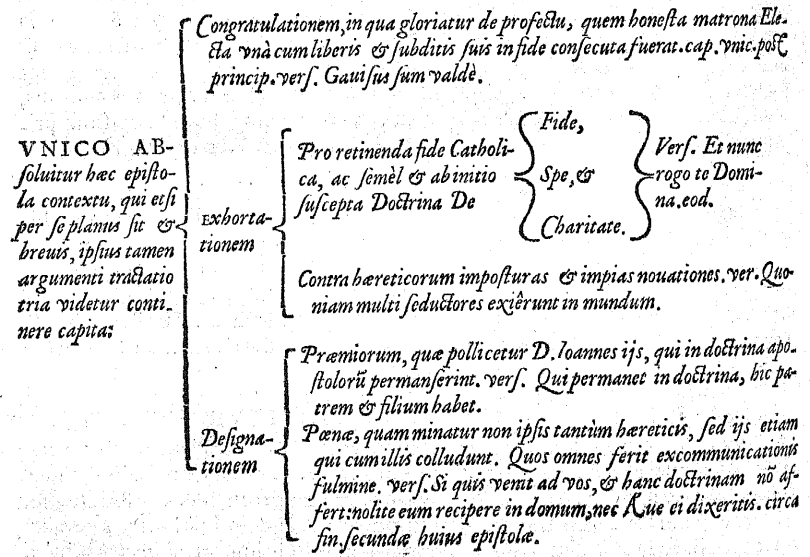 VNICO AB-
ſoluitur hæc epiſto-
la contextu, qui etſi
per ſe planus ſit &
breuis, ipſius tamen
argumenti tractatio
tria videtur conti-
nere capita:
Congratulationem, in qua gloriatur de profectu, quem honeſta matrona Ele-
cta vnà cum liberis & ſubditis ſuis in fide conſecuta fuerat. cap. vnic. poſt
princip. verſ. Gauiſus ſum valdè.
Exhorta-
tionem
Pro retinenda fide Catholi-
ca, ac ſemèl & ab initio
ſuſcepta Doctrina De
Fide,
Spe, &
Charitate.
Verſ. Et nunc
rogo te Domi-
na. eod.
Contra hæreticorum impoſturas & impias nouationes. ver. Quo-
niam multi ſeductores exiêrunt in mundum.
Deſigna-
tionem
Præmiorum, quæ pollicetur D. Ioannes ijs, qui in doctrina apo-
ſtolorū permanſerint. verſ. Qui permanet in doctrina, hic pa-
trem & filium habet.
Pœnæ, quam minatur non ipſis tantùm hæreticis, ſed ijs etiam
qui cum illis colludunt. Quos omnes ferit excommunicationis
fulmine. verſ. Si quis venit ad vos, & hanc doctrinam nō af-
fert: nolite eum recipere in domum, nec Aue ei dixeritis. circa
fin. ſecundæ huius epiſtolæ.